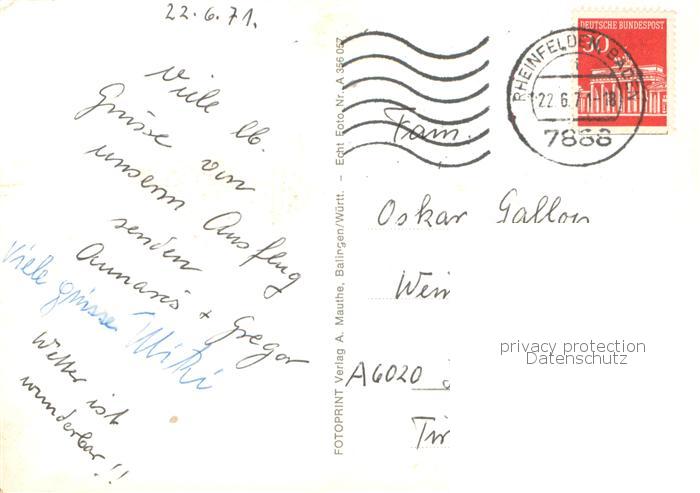 22.6.71.
Viele lb.
Grüsse von
unserm Ausflug
senden
Annaris + Gregor
Viele grüsse Miki
Wetter ist
wunderbar!!
FOTOPRINT Verlag A. Mauthe, Balingen/Württ. – Echt Foto Nr. A 356 057
DEUTSCHE BUNDESPOST
30
RHEINFELDEN, BADEN
22.6.71-18
7888
Fam.
Oskar Gallon
Wein
A6020
Tir
privacy protection
Datenschutz